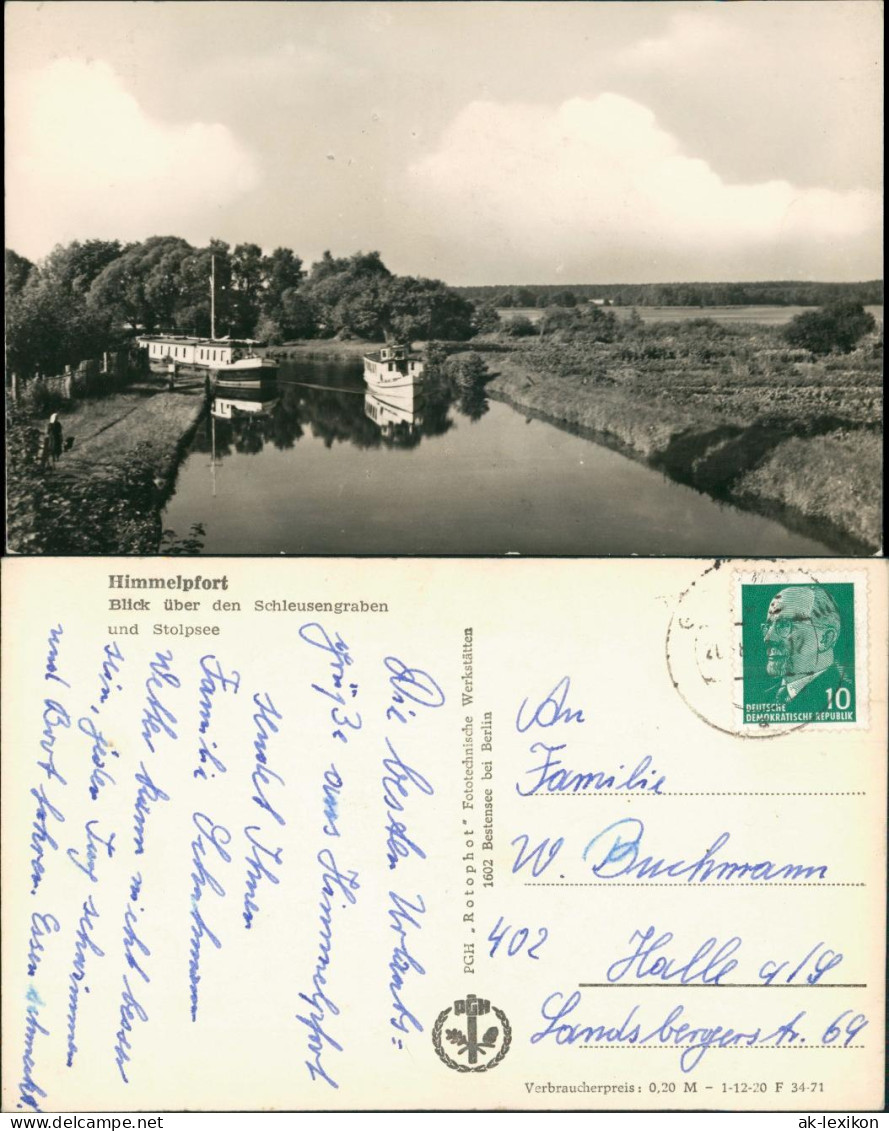 Himmelpfort
Blick über den Schleusengraben
und Stolpsee
Die besten Urlaubs=
grüße aus Himmelpfort
sendet Ihnen
Familie
Wetter kann nicht besser
sein, jeden Tag schwimmen
und Boot fahren. Essen schmeckt.
PGH „Rotophot" Fototechnische Werkstätten
1602 Bestensee bei Berlin
PGH
DEUTSCHE
DEMOKRATISCHE REPUBLIK
10
An
Familie
W. Buchmann
402 Halle a/S
Landsbergerstr. 69
Verbraucherpreis: 0,20 M – 1-12-20 F 34-71
delcampe.net
ak-lexikon